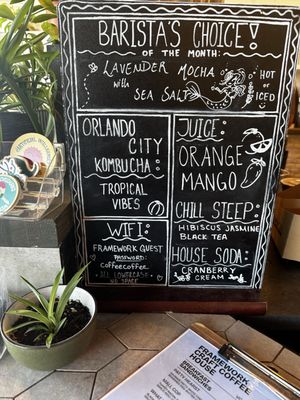 BARISTA'S CHOICE!
OF THE MONTH:
LAVENDER MOCHA
with
SEA SALT
HOT
or
ICED
ORLANDO
CITY
KOMBUCHA:
TROPICAL
VIBES
WIFI:
FRAMEWORK GUEST
PASSWORD:
coffeecoffee
ALL LOWERCASE
NO SPACE
JUICE:
ORANGE
MANGO
CHILL STEEP:
HIBISCUS JASMINE
BLACK TEA
HOUSE SODA:
CRANBERRY
CREAM
FRAMEWORK
CRAFT HOUSE COFFEE
BREAKFAST
SANDWICHES